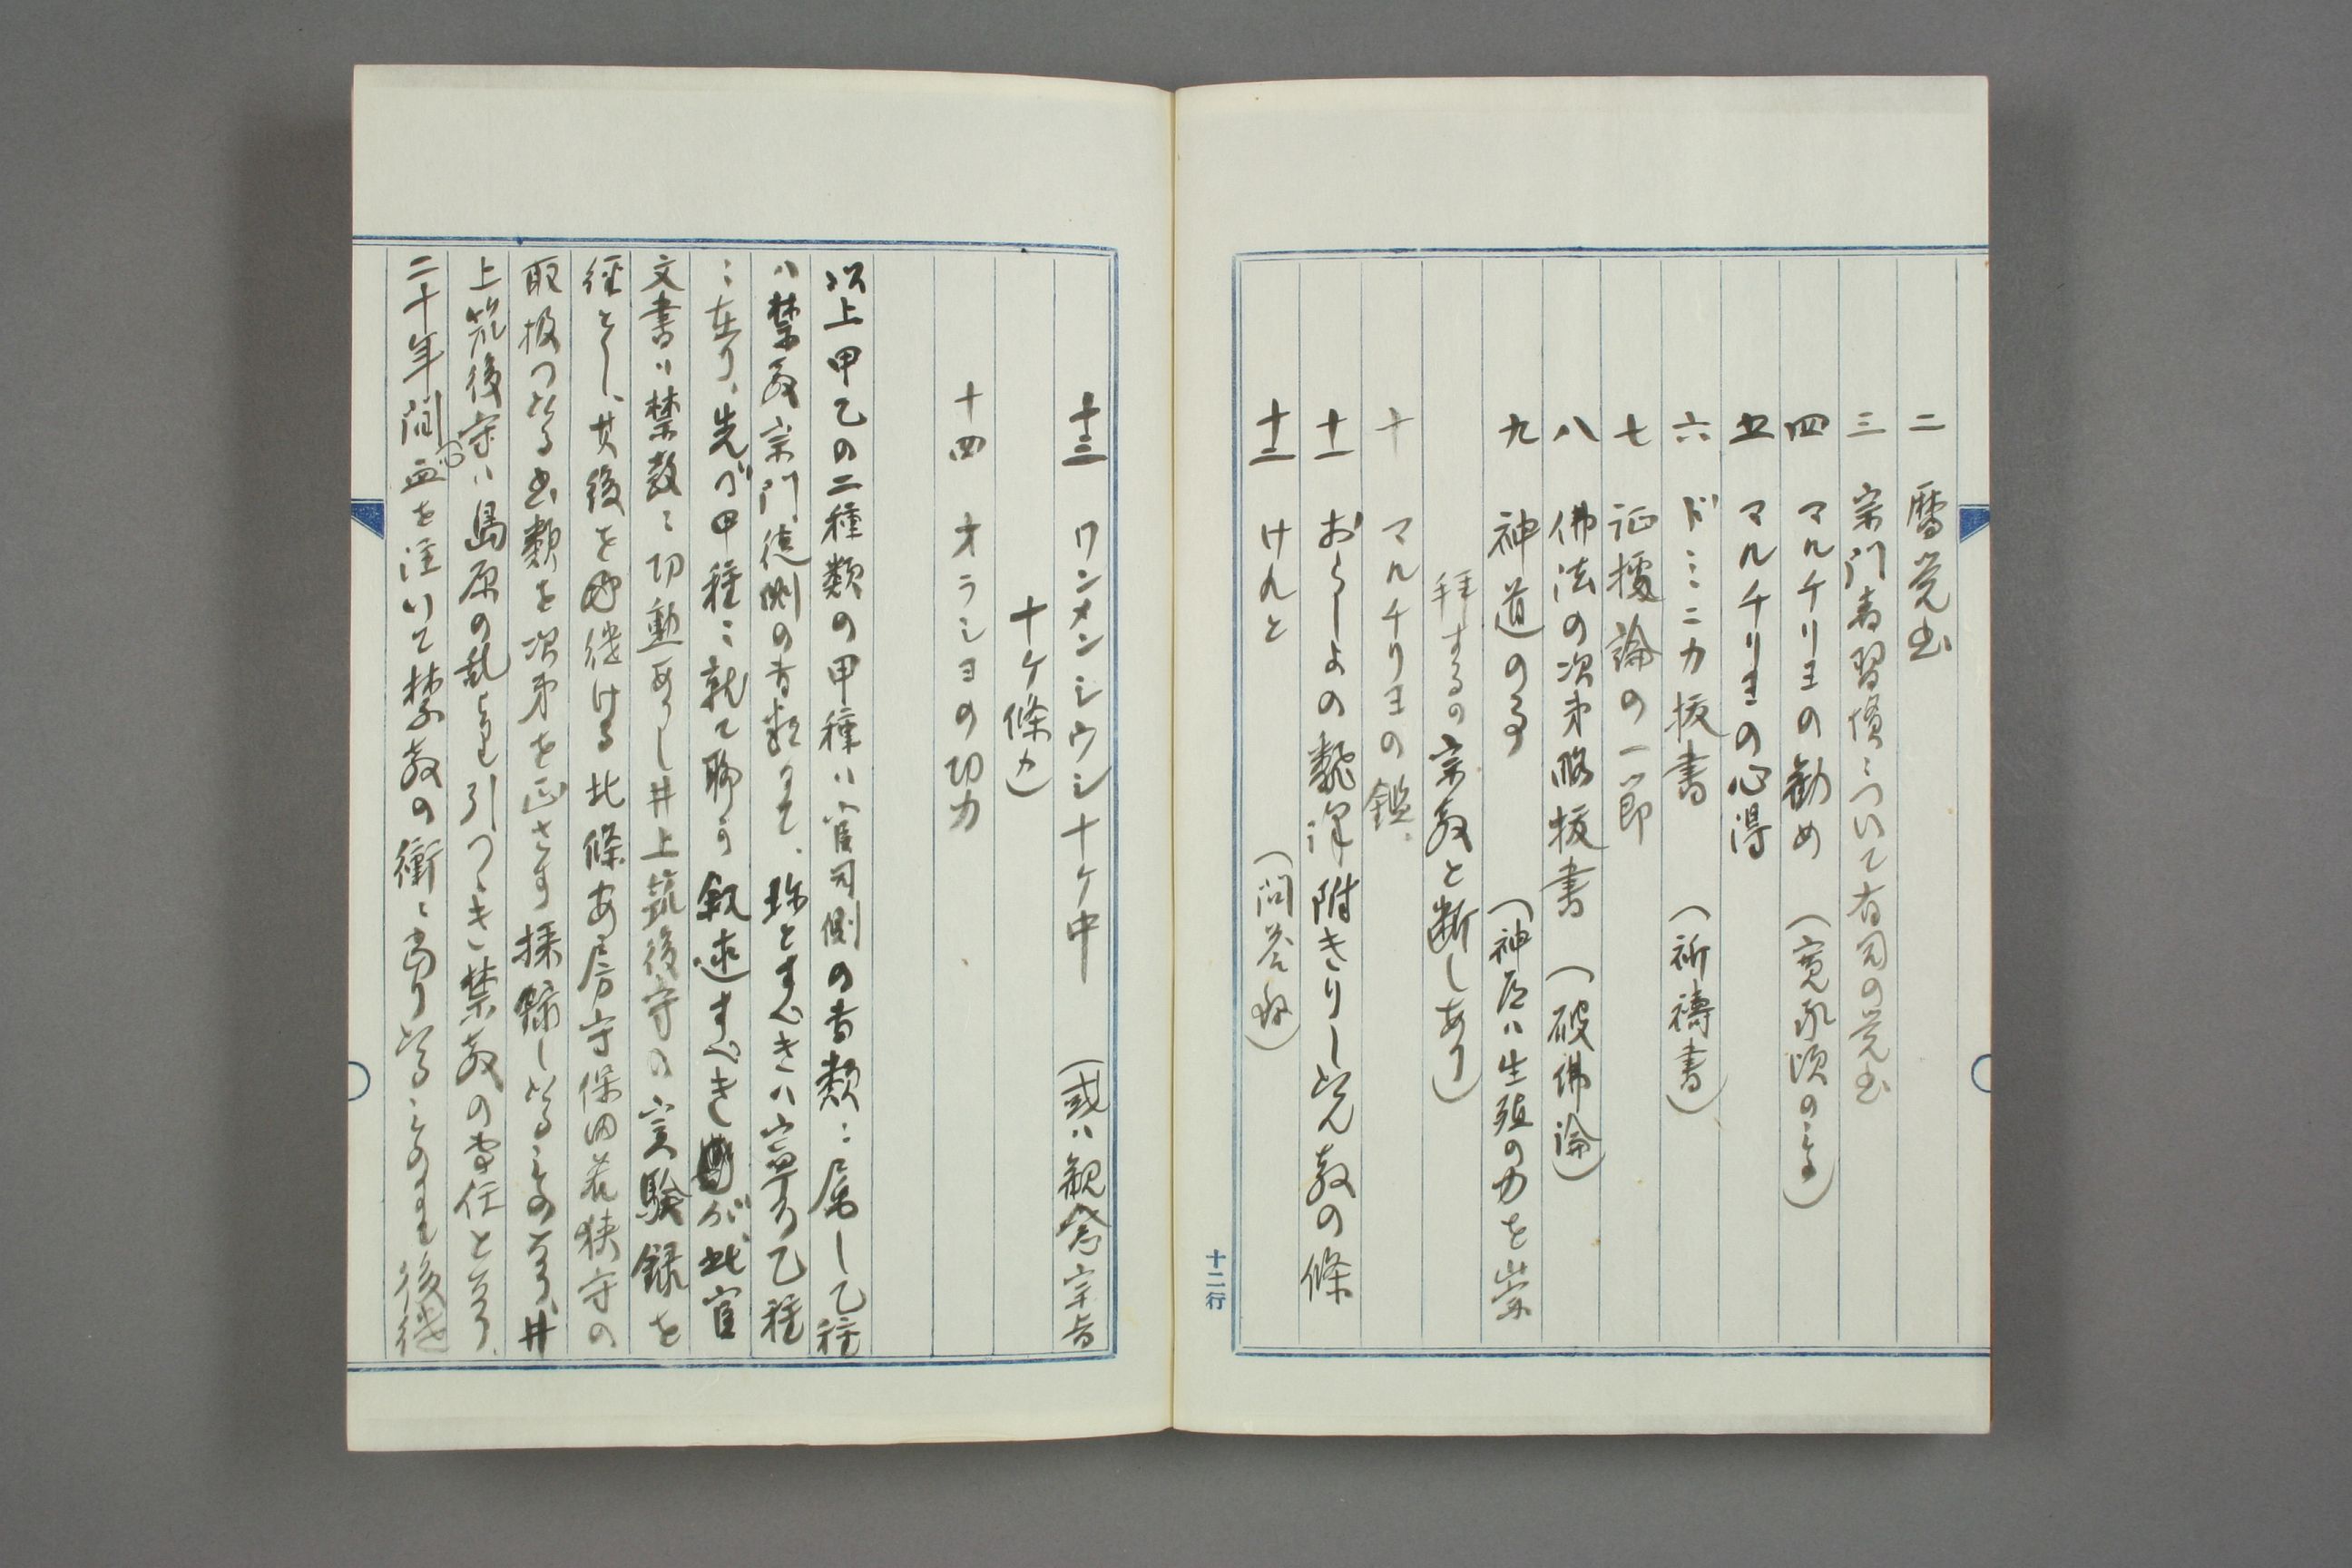 二　暦覚書
三　宗門者習慣ニついて有司の覚書
四　マルチリヨの勧め　（寛永頃のもの）
五　マルチリヨの心得
六　ドミニカ抜書　（祈禱書）
七　証據論の一節
八　佛法の次第略抜書　（破佛論）
九　神道の事　（神道ハ生殖の力を崇
拝するの宗教と断しあり）
十　マルチリヨの鑑
十一　おらしよの飜譯附きりしたん教の條
十二　けれと　（問答体）
十三　ワンメンシウシ十ケ中　（或ハ観念宗旨
十ケ條カ）
十四　オラシヨの功力
以上甲乙の二種類の甲種ハ官司側の書類ニ属し乙種
ハ禁教宗門徒側の書類にて、珍とすべきハ寧ろ乙種
ニ在り、先づ甲種ニ就て聊か叙述すべきが此官
文書ハ禁教ニ功勳ありし井上筑後守の実験録を
経とし、其後を継ける北條安房守保田若狭守の
取扱つたる書類を次第を正さす採録したるものなり、井
上筑後守ハ島原の乱より引つゞき禁教の専任となり、
二十年間の血を注いて禁教の衝ニ当りたるものにて後継
十二行